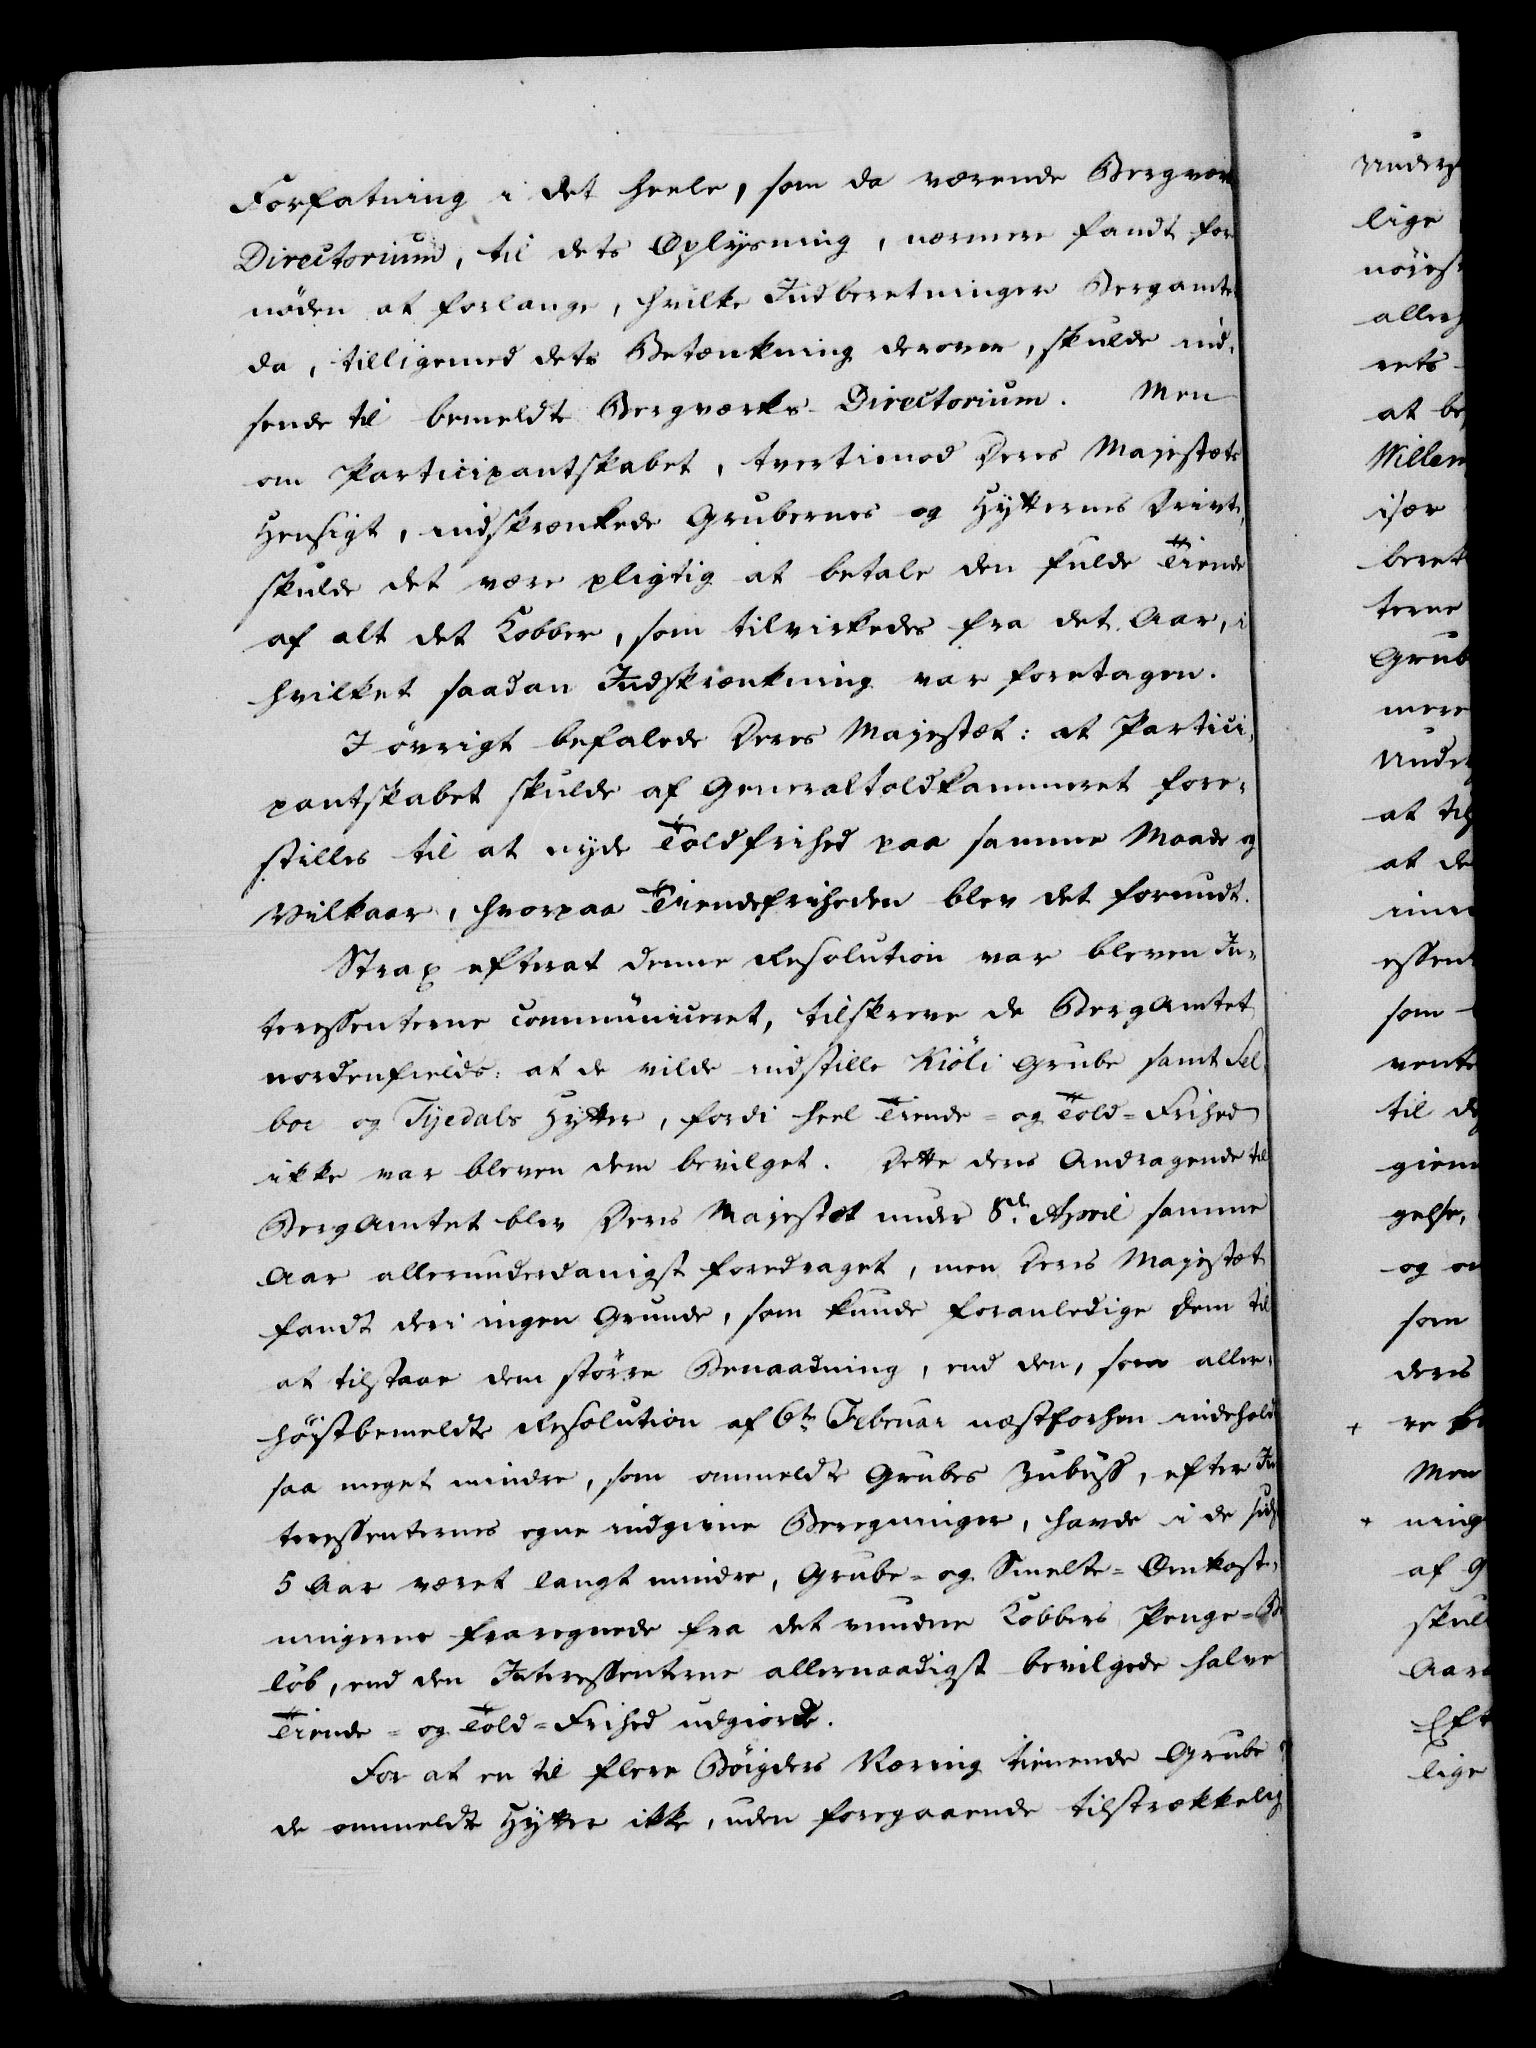 Forfatning i det heele, som da værende Bergværks
Directorium, til dets Oplysning, nærmere fandt for
nöden at forlange, hvilke Indberetninger Bergamtet
da, tilligemed dets Betænkning derover, skulde ind-
sende til bemeldte Bergværks-Directorium. Men
om Participantskabet, tvertimod Deres Majestæts
Hensigt, indskrænkede Grubernes og Hytternes Drivt,
skulde det være pligtig at betale den fulde Tiende
af alt det Kobber, som tilvirkedes fra det Aar, i
hvilket saadan Indskrænkning var foretagen.
I övrigt befalede Deres Majestæt: at Partici-
pantskabet skulde af Generaltoldkammeret fore-
stilles til at nyde Toldfrihed paa samme Maade og
Vilkaar, hvorpaa Tiendefriheden blev det forundt.
Strax efterat denne Resolution var bleven In-
teressenterne communiceret, tilskreve de BergAmtet
nordenfields: at de vilde indstille Kiöli Grube samt Sel-
boe og Tyedals Hytter, fordi heel Tiende- og Told-Frihed
ikke var bleven dem bevilget. Dette deres Andragende til
BergAmtet blev Deres Majestæt under 8de April samme
Aar allerunderdanigst foredraget, men Deres Majestæt
fandt deri ingen Grunde, som kunde foranledige Dem til
at tilstaae dem större Benaadning, end den, som aller-
höistbemeldte Resolution af 6te Februar næstforhen indeholdt
saa meget mindre, som ommeldte Grubes Zubuss, efter In-
teressenternes egne indgivne Beregninger, havde i de sidste
5 Aar været langt mindre, Grube- og Smelte-Omkost-
ningerne fraregnede fra det vundne Kobbers Penge-Be-
löb, end den Interessenterne allernaadigst bevilgede halve
Tiende- og Told-Frihed udgiorde.
For at en til flere Böigders Næring tienende Grube og
de ommeldte Hytter ikke, uden foregaaende tilstrækkelig
lige
at
Willem
især
beret
terne
Grub
mere
at
at de
essent
som
vente
til
gelse,
og
som
deres
Men
ning
af
lige